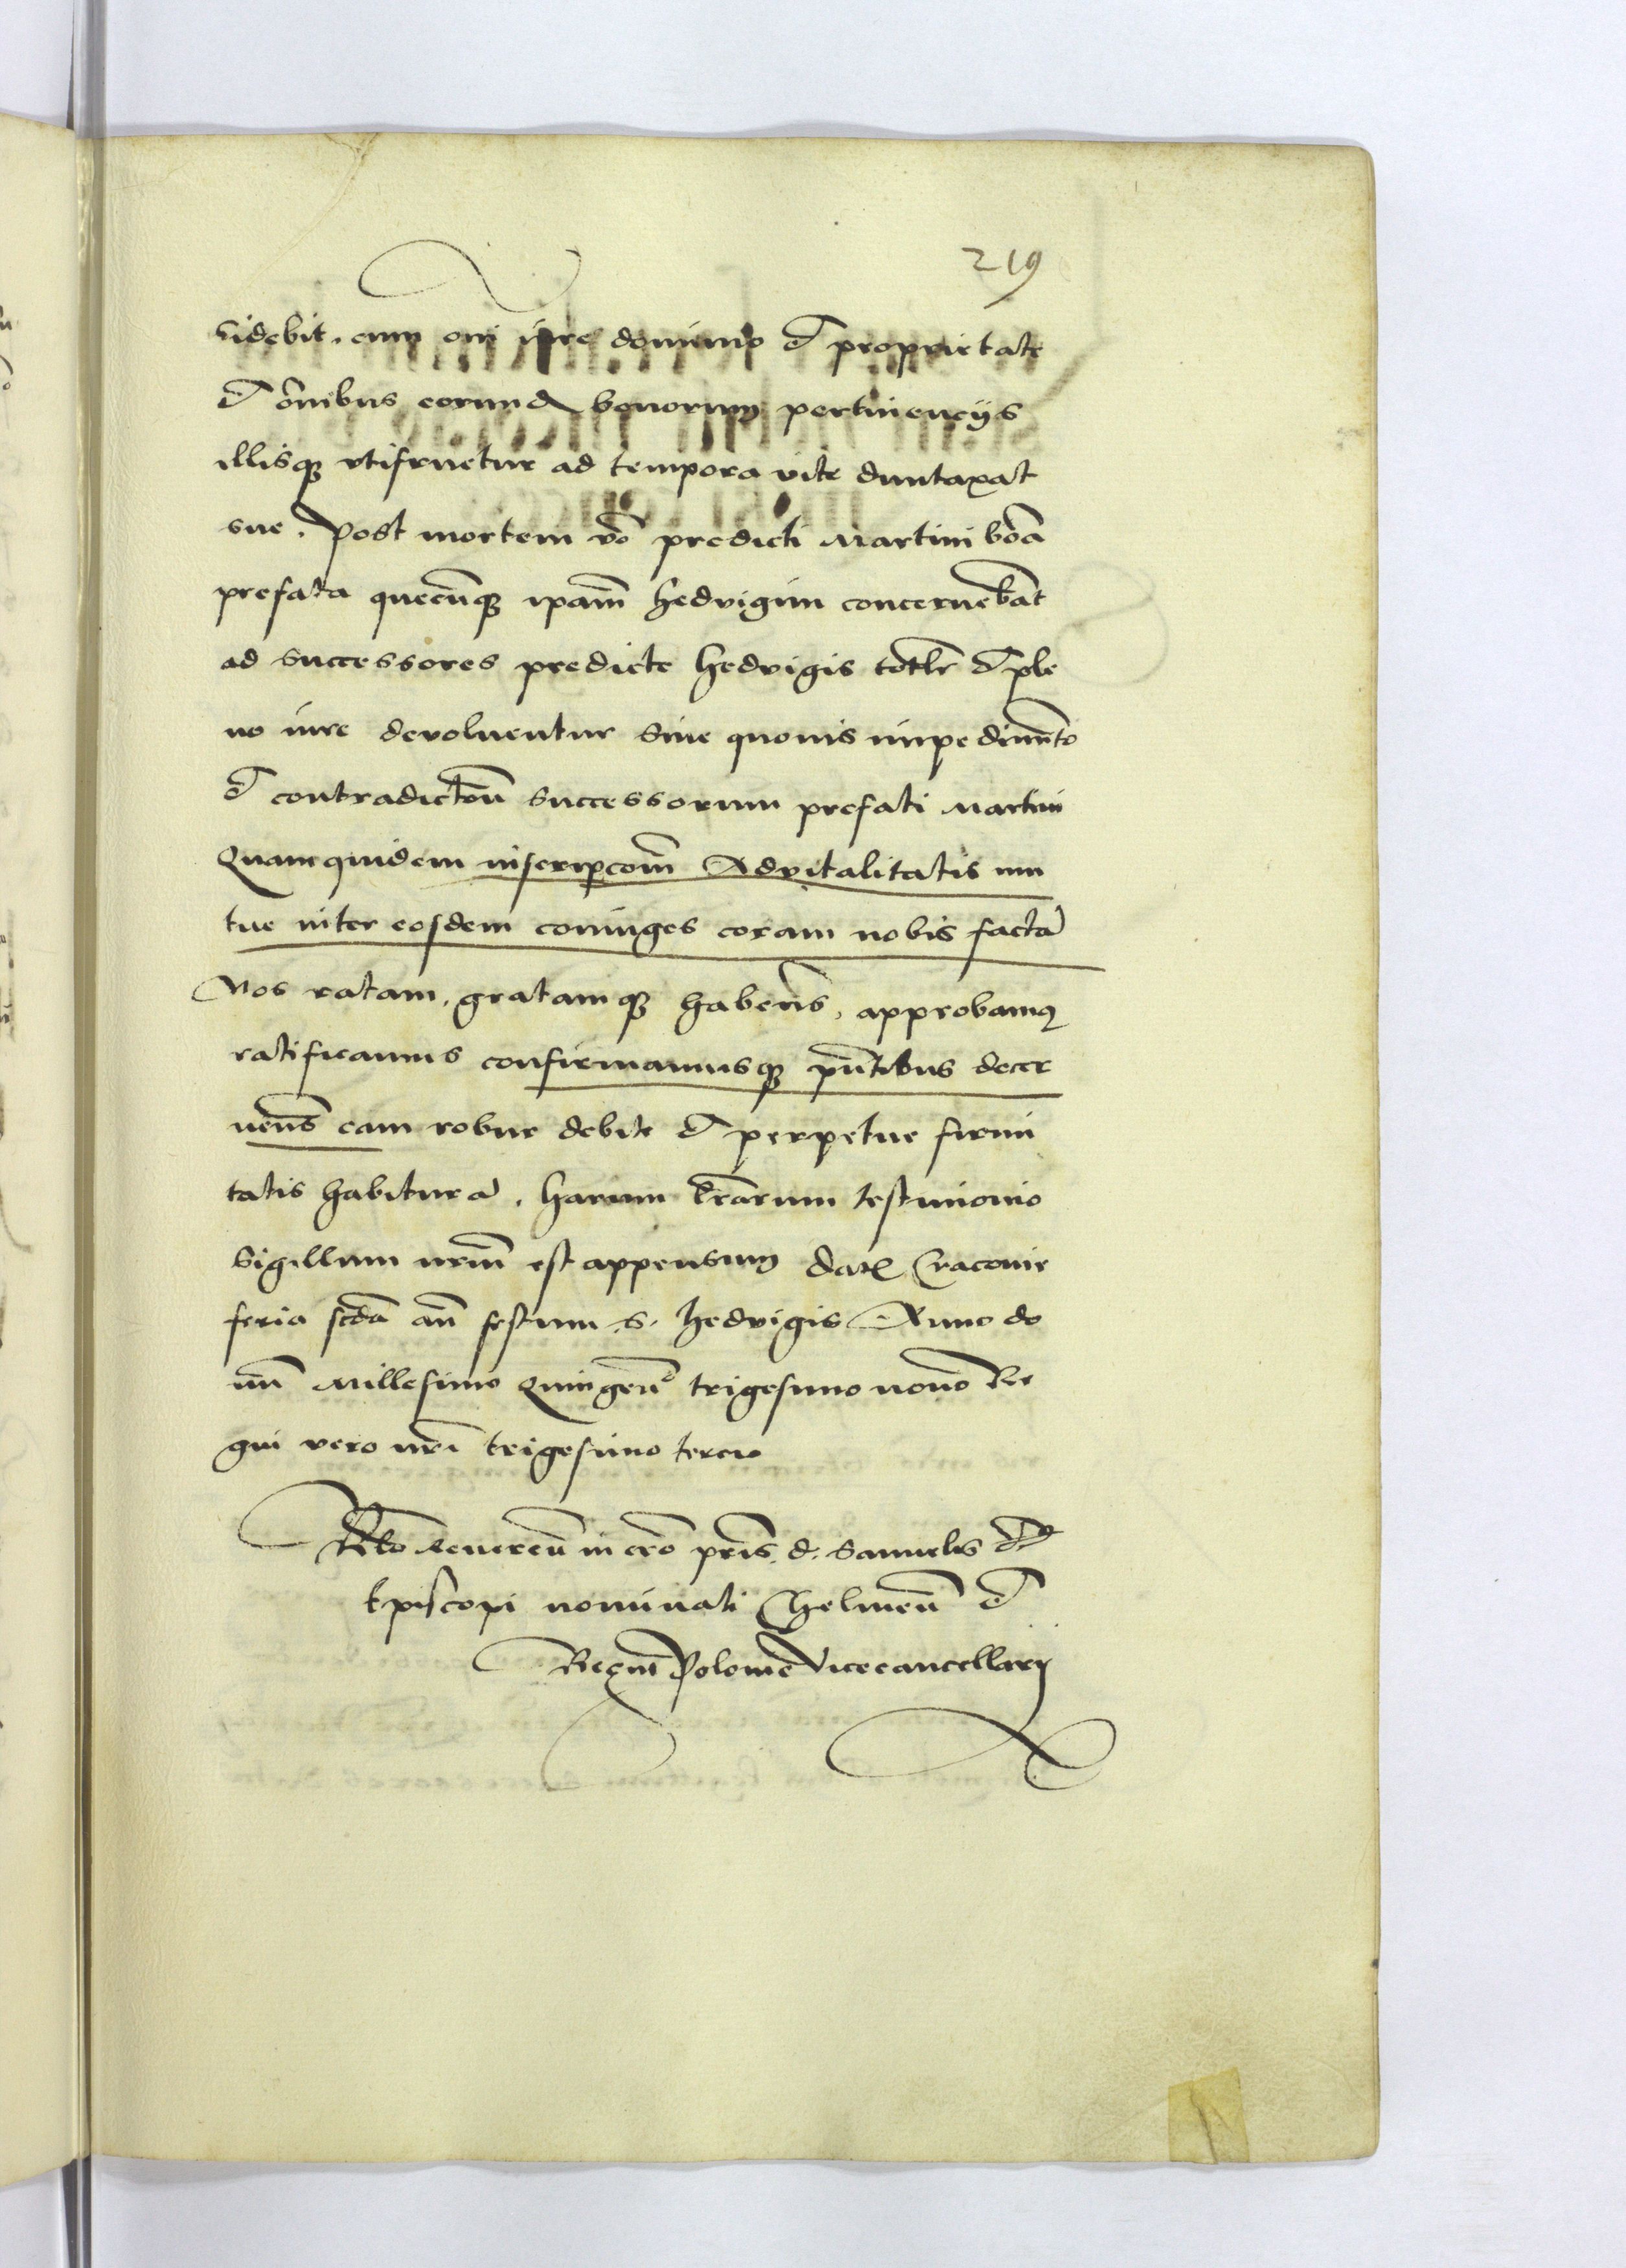 219
sidebit. cum om̄i iure dominio et proprietate
et om̄ibus eorund bonorum pertinencÿs
illisq3 vtifruetur ad tempora vite duntaxat
sue. Post mortem v̄o predicti Martini bōa
prefata quecūq3 ip̄am Hedvigim concernebāt
ad successores predicte Hedvigis totlr̄ et ple
no iure devoluentur sine quouis impedimēto
et contradict̄oē successorum prefati Martini
Quamquidem inscripcōm Advitalitatis mu
tue inter eosdem coniuges coram nobis factā
Nos ratam, gratamq3 habeñs, approbamꝰ
ratificamus confirmamusq3 pñtibus decer
neñs eam robur debite et perpetue firmi
tatis habiturā. Harum lr̄arum testimonio
sigillum nrm̄ est appensum Dat Cracouie
feria scdā añ festum S. Hedvigis Anno do
mī Millesimo Quingeñ° trigesimo nono Re
gni vero nrī trigesimo tercio
Rlō Reuereñ in cr̄o pr̄is. d. Samuelis
Episcopi nominati Chelmeñ et
Regnī Polonie Vicecancellarÿ